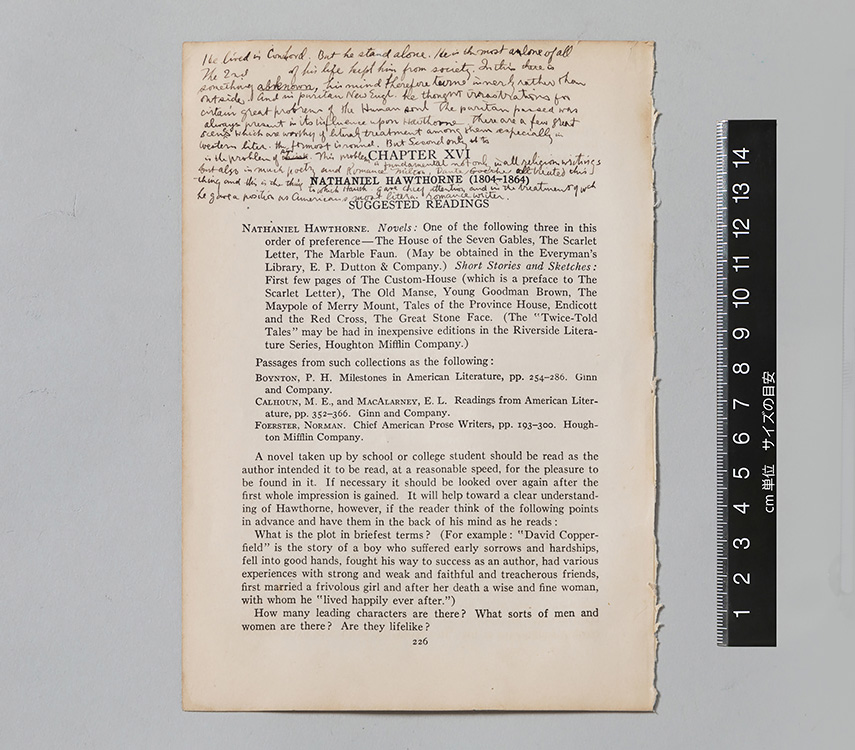 He lived in Concord. But he stand alone. He is the most alone of all
The 2nd of his life kept him from society. In this there is
something, his mind therefore turns innerly rather than
outside. And in puritan New Engl. he thought for
certain great problems of the Human soul. The puritan passed was
always present in its influence upon Hawthorne. There are a few great
which are worthy of literal treatment among them especially in
western liter. the formost is. But Second only to
is the problem of. This problem
is fundamental not only in all religion writings
but also in much poetry and Romance. Dante, Goethe all treated this
thing and this is the thing to which gave chief attention and in the treatment of wch
he gave a position as American's most litera. romance writer.
CHAPTER XVI
NATHANIEL HAWTHORNE (1804–1864)
SUGGESTED READINGS
NATHANIEL HAWTHORNE. Novels: One of the following three in this
order of preference—The House of the Seven Gables, The Scarlet
Letter, The Marble Faun. (May be obtained in the Everyman's
Library, E. P. Dutton & Company.) Short Stories and Sketches:
First few pages of The Custom-House (which is a preface to The
Scarlet Letter), The Old Manse, Young Goodman Brown, The
Maypole of Merry Mount, Tales of the Province House, Endicott
and the Red Cross, The Great Stone Face. (The "Twice-Told
Tales" may be had in inexpensive editions in the Riverside Litera-
ture Series, Houghton Mifflin Company.)
Passages from such collections as the following:
BOYNTON, P. H. Milestones in American Literature, pp. 254–286. Ginn
and Company.
CALHOUN, M. E., and MACALARNEY, E. L. Readings from American Liter-
ature, pp. 352–366. Ginn and Company.
FOERSTER, NORMAN. Chief American Prose Writers, pp. 193–300. Hough-
ton Mifflin Company.
A novel taken up by school or college student should be read as the
author intended it to be read, at a reasonable speed, for the pleasure to
be found in it. If necessary it should be looked over again after the
first whole impression is gained. It will help toward a clear understand-
ing of Hawthorne, however, if the reader think of the following points
in advance and have them in the back of his mind as he reads:
What is the plot in briefest terms? (For example: "David Copper-
field" is the story of a boy who suffered early sorrows and hardships,
fell into good hands, fought his way to success as an author, had various
experiences with strong and weak and faithful and treacherous friends,
first married a frivolous girl and after her death a wise and fine woman,
with whom he "lived happily ever after.")
How many leading characters are there? What sorts of men and
women are there? Are they lifelike?
226
1 2 3 4 5 6 7 8 9 10 11 12 13 14
cm 単位 サイズの目安